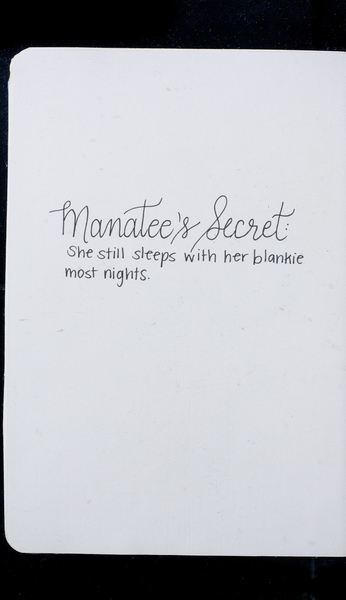 Manatee's Secret:
She still sleeps with her blankie
most nights.